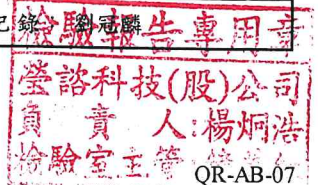 記錄：劉冠麟
檢驗報告專用章
瑩諮科技(股)公司
負責人:楊炯浩
檢驗室主管
QR-AB-07